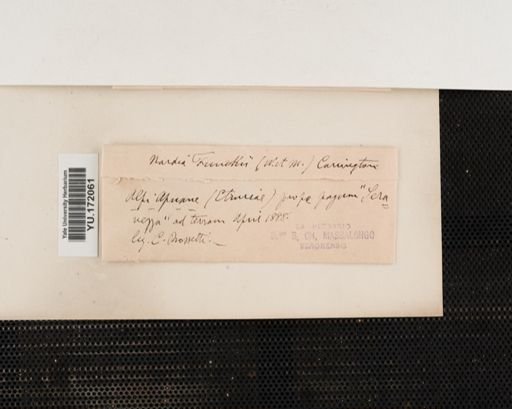 Yale University Herbarium
YU.172061
Nardia Funckii (W et M.) Carrington
Alpi Apuane (Etruriae) prope pagum "Sera
vezza" ad terram April 1885.
leg. C. Rossetti.
C. MASSALONGO
VERONENSE